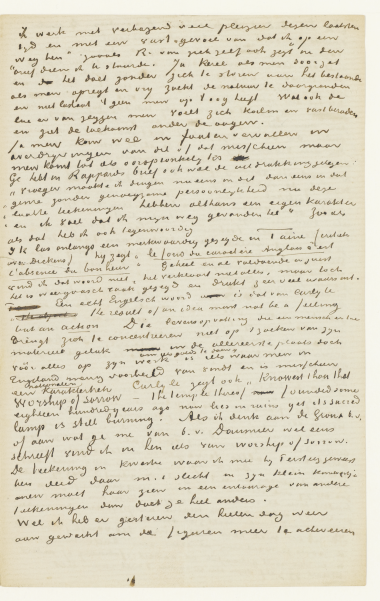 Ik werk met verhoogd veel pleizier dezen laatsten
tijd en met een vast gevoel van dat ik op een
weg ben zooals R. van zich zelf ook zegt in den
brief dien ik U stuurde. Ja kerel als men doorzet
en het doel zonder zich te storen aan het bestaande
als men opregt en vrij zoekt de natuur te doorgronden
en niet loslaat 't geen men op 't oog heeft wat ook de
lui er van zeggen men voelt zich kalm en vastberaden
en ziet de toekomst onder de oogen.
Ja men kan wel in fouten vervallen in
overdrijvingen van dit of dat misschien maar
men komt los als oorspronkelijks
Ge hebt in Rappards brief ook wel de uitdrukking gelezen
vroeger maakte ik dingen nu eens in dit dan eens in dat
genre zonder genoegzame persoonlijkheid nu deze
laatste teekeningen hebben althans een eigen karakter
en ik voel dat ik mijn weg gevonden heb. Zoo als
als dat heb ik ook tegenwoordig
Ik las onlangs een merkwaardig gezegde in Taine
van Dickens) hij zegt le fond du caractère anglais c'est
l'absence du bonheur.
vind ik dat woord niet, het verklaart niet alles maar toch
het is een gezegde en drukt zeer veel waars uit.
Een echt Engelsch woord is dat van Carlyle
The result of an idea must not be a feeling
but an action Die levensopvatting die een mensch er toe
brengt zich te concentreeren niet op 't zoeken van zijn
materieel geluk in de allereerste plaats doch
vóór alles op zijn werk is iets waar men in
Engeland menig voorbeeld van vindt en is misschien
een karaktertrek Carlyle zegt ook Knowest thou that
Worship of sorrow – the temple thereof founded some
eighteen hundred years ago now lies in ruins yet its sacred
lamp is still burning. Als ik denk aan de Groux b.v.
of aan wat ge me van b.v. Daumier wel eens
schreeft vind ik in hen iets van worship of sorrow.
De teekening in kwestie waar ik mee bij Tersteeg
ben
moet haar zien in een entourage van andere
teekeningen dan doet ze heel anders.
Wel ik heb er gisteren den heelen dag weer
aan gewerkt om de figuren meer te acheveeren